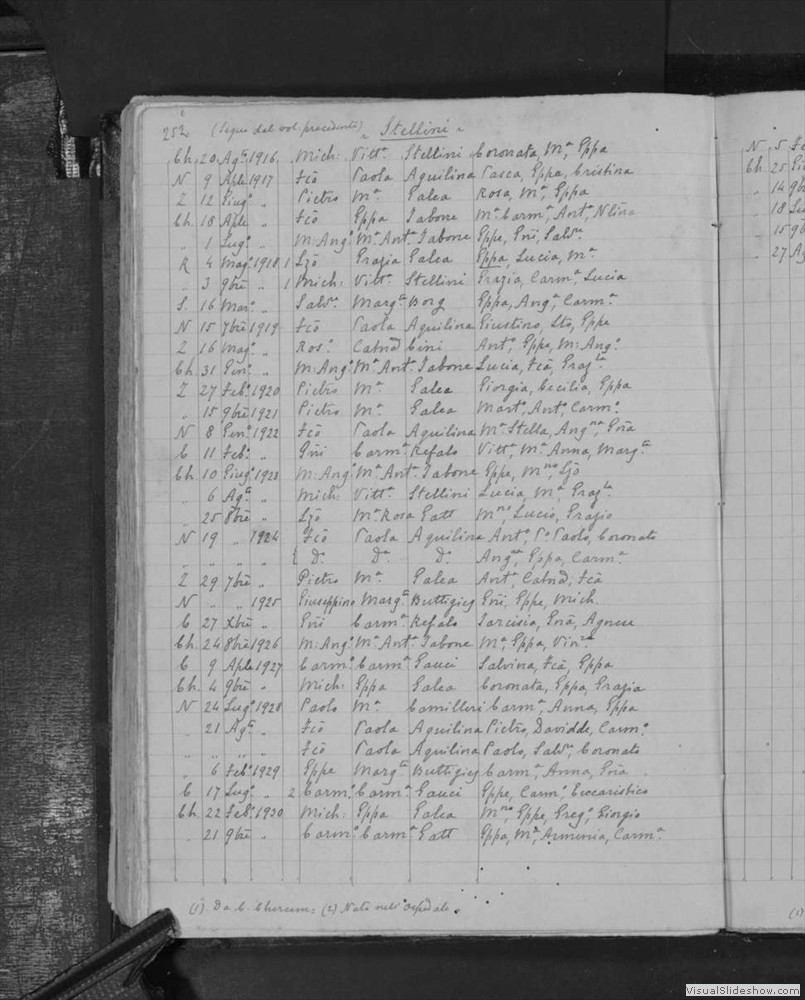 252 (Segue dal vol. precedente) Stellini
Ch. 20 Agto 1916 Mich: Vitta Stellini Coronata, Ma, Eppa
N 9 Aple 1917 Fco Paola Aquilina Pasca, Eppa, Cristina
Z 12 Giugo " Pietro Ma Galea Rosa, Ma, Eppa
Ch. 18 Aple " Fco Eppa Tabone Ma Carma, Anta
" 1 Lugo " M: Ango Ma Anta Tabone Eppe, Salvre
K 4 Mago 1918 1 Ljo Grazia Galea Eppa, Lucia, Ma
" 3 9bre " 1 Mich: Vitta Stellini Grazia, Carma, Lucia
S. 16 Mar. " Salvre Margta Borg Eppa, Anga, Carma
N 15 7bre 1919 Fco Paola Aquilina Giustino, Eppe
Z 16 Mago " Ros. Catnd Cini Anto, Eppe, M: Ango
Ch. 31 " M: Ango Ma Anta Tabone Lucia, Fca
Z 27 Febo 1920 Pietro Ma Galea Giorgia, Cecilia, Eppa
" 15 9bre 1921 Pietro Ma Galea Anto, Carmo
N 8 Geno 1922 Fco Paola Aquilina Ma Stella
C 11 Febo " Gni Carma Refalo Vitta, Ma Anna, Margta
Ch. 10 Giugo 1923 M: Ango Ma Anta Tabone Eppe, Mno, Ljo
" 6 Agto " Mich: Vitta Stellini Lucia, Ma
" 25 8bre " Ljo Ma Rosa Gatt Mno, Lucio, Grazio
N 19 " 1924 Fco Paola Aquilina Anto, Paolo, Coronato
" " " " { Do Do Do Eppa, Carma
Z 29 7bre " Pietro Ma Galea Anta, Catnd, Fca
N " " 1925 Giuseppino Margta Buttigieg Gni, Eppe, Mich.
C 27 Xbre " Gni Carma Refalo Tarcisia, Gna, Agnese
Ch. 24 8bre 1926 M: Ango Ma Anta Tabone Ma, Eppa
C 9 Aple 1927 Carmo Carma Gauci Salvina, Fca, Eppa
Ch. 4 9bre " Mich: Eppa Galea Coronata, Eppa, Grazia
N 24 Lugo 1928 Paolo Ma Camilleri Carma, Anna, Eppa
" 21 Agto " Fco Paola Aquilina Pietro, Davidde, Carmo
" " " " Fco Paola Aquilina Paolo, Salvre, Coronato
" 6 Febo 1929 Eppe Margta Buttigieg Carma, Anna, Gna
C 17 Lugo " 2 Carmo Carma Gauci Eppe, Carmo, Eucaristico
Ch. 22 Febo 1930 Mich: Eppa Galea Mno, Eppe, Grego, Giorgio
" 21 9bre " Carmo Carma Gatt Eppa, Ma, Arminia, Carma
(1) Da C. Chercem; (2) Nato nell'ospedale.
N 5
Ch. 25
" 14
" 18
" 15
" 27
(1)
VisualSlideshow.com